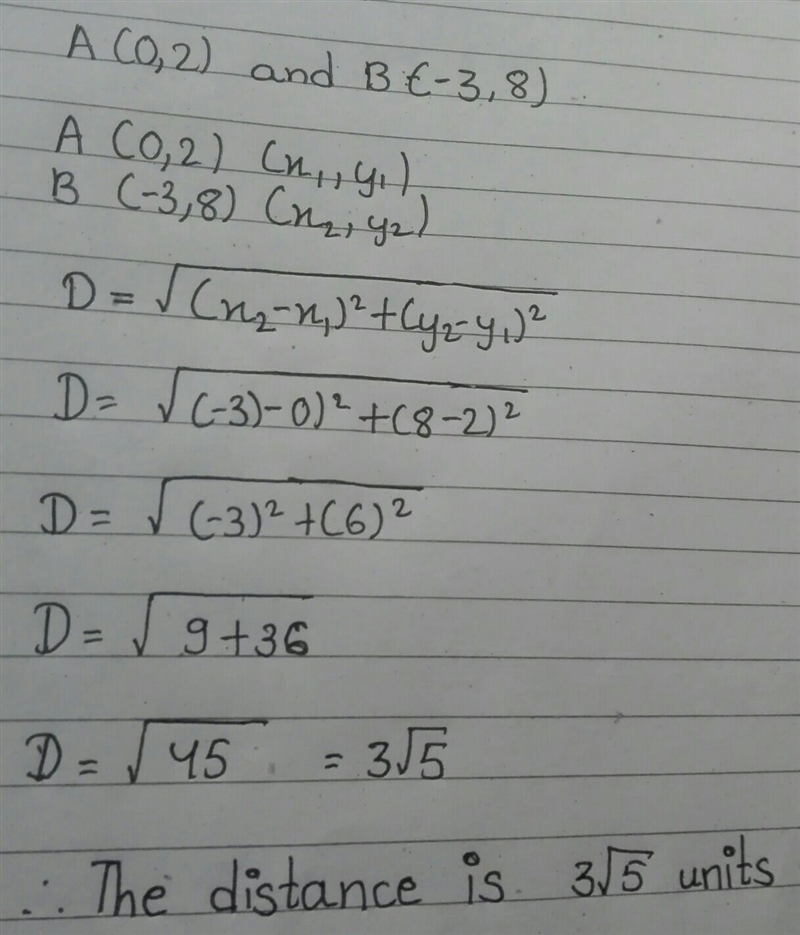 A (0,2) and B (-3,8)
A (0,2) (x₁, y₁)
B (-3,8) (x₂, y₂)
D = √(x₂-x₁)²+(y₂-y₁)²
D = √(-3)-0)²+(8-2)²
D = √(-3)²+(6)²
D = √9+36
D = √45 = 3√5
∴ The distance is 3√5 units